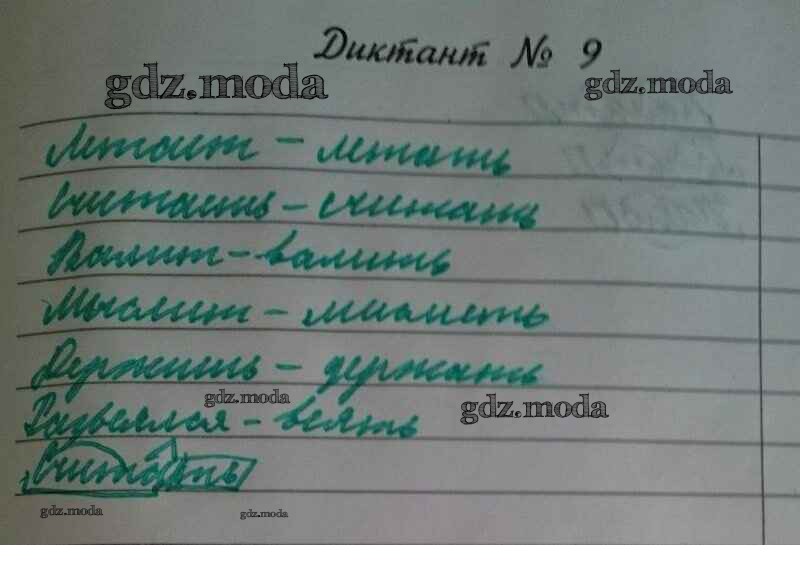 Диктант № 9
gdz.moda
gdz.moda
Мтаит – мтать
Считаешь – считать
Валит – валить
Мыслит – мыслить
Держишь – держать
gdz.moda
gdz.moda
Развеялся – веять
Считать
gdz.moda
gdz.moda